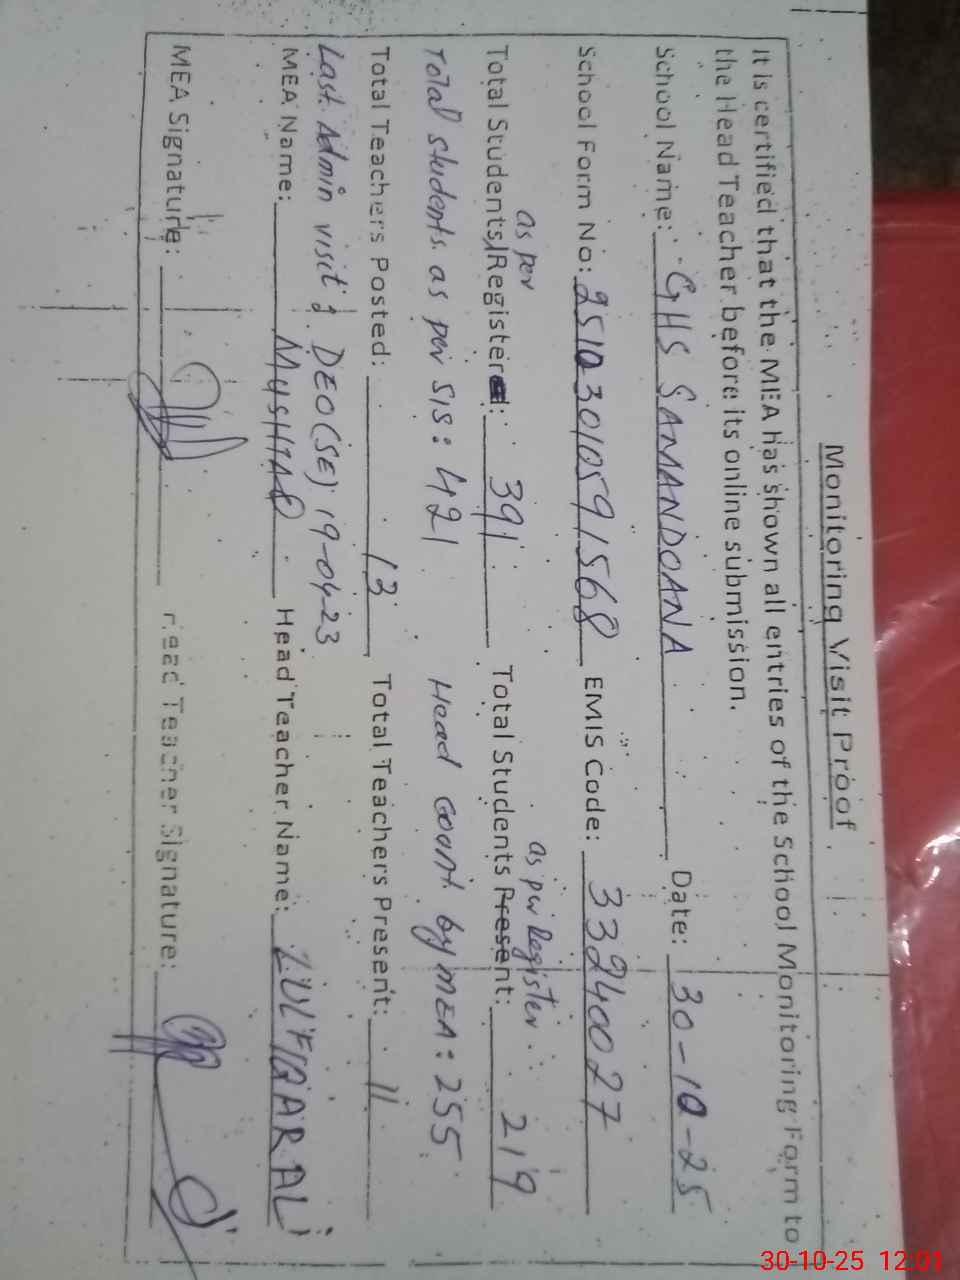 Monitoring Visit Proof
It is certified that the MEA has shown all entries of the School Monitoring Form to
the Head Teacher before its online submission.
School Name: GHS SAMANDOANA Date: 30-10-25
School Form No: 2510301059 1568 EMIS Code: 33240027
as per as per Register
Total Students Register: 391 Total Students Present: 219
Total students as per SIS: 421 Head count by MEA: 255
Total Teachers Posted: 13 Total Teachers Present: 11
Last Admin visit: DEO(SE) 19-04-23
MEA Name: MUSHTAQ Head Teacher Name: ZULFIQAR ALI
MEA Signature: Head Teacher Signature:
30-10-25 12:01